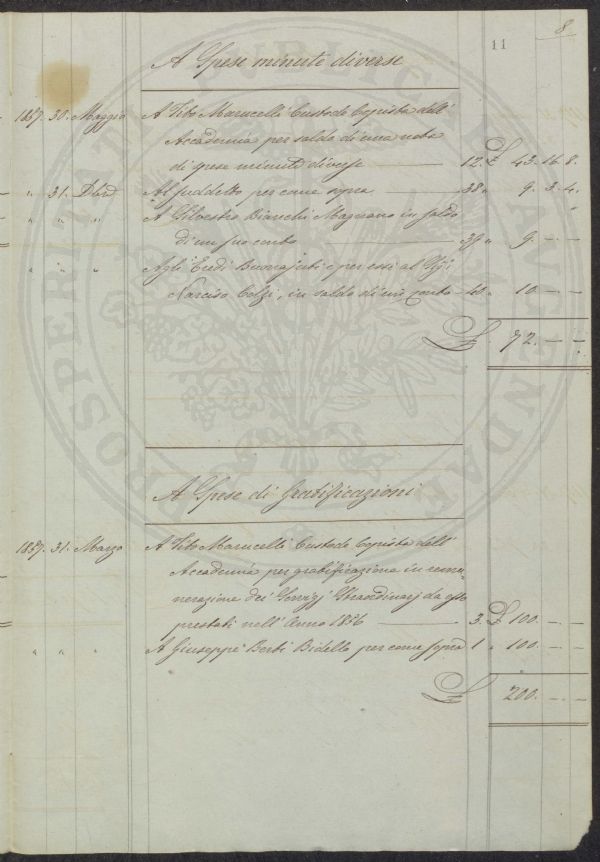 11
8
A Spese minute diverse
1837. 30. Maggio A Tito Marucelli Custode Copista dell'
Accademia per saldo di una nota
di spese minute diverse 12. £ 43. 16. 8.
" 31. Dbre Al suddetto per come sopra 38 " 9. 3. 4.
" " " A Silvestro Bianchi Magnano in saldo
di un suo conto 39 " 9. — —
" " " Agli Eredi Buonajuti e per essi al Sig.
Narciso Colzi, in saldo di un conto 40 " 10. — —
£ 72. — —
A Spese di Gratificazioni
1837. 31. Marzo A Tito Marucelli Custode Copista dell'
Accademia per gratificazione in remu-
nerazione dei Servizj Straordinarj da esso
prestati nell'Anno 1836 3. £ 100. — —
" " " A Giuseppe Berti Bidello per come sopra 1 " 100. — —
£ 200. — —
PROSPERITATI PUBLICAE AUGENDAE